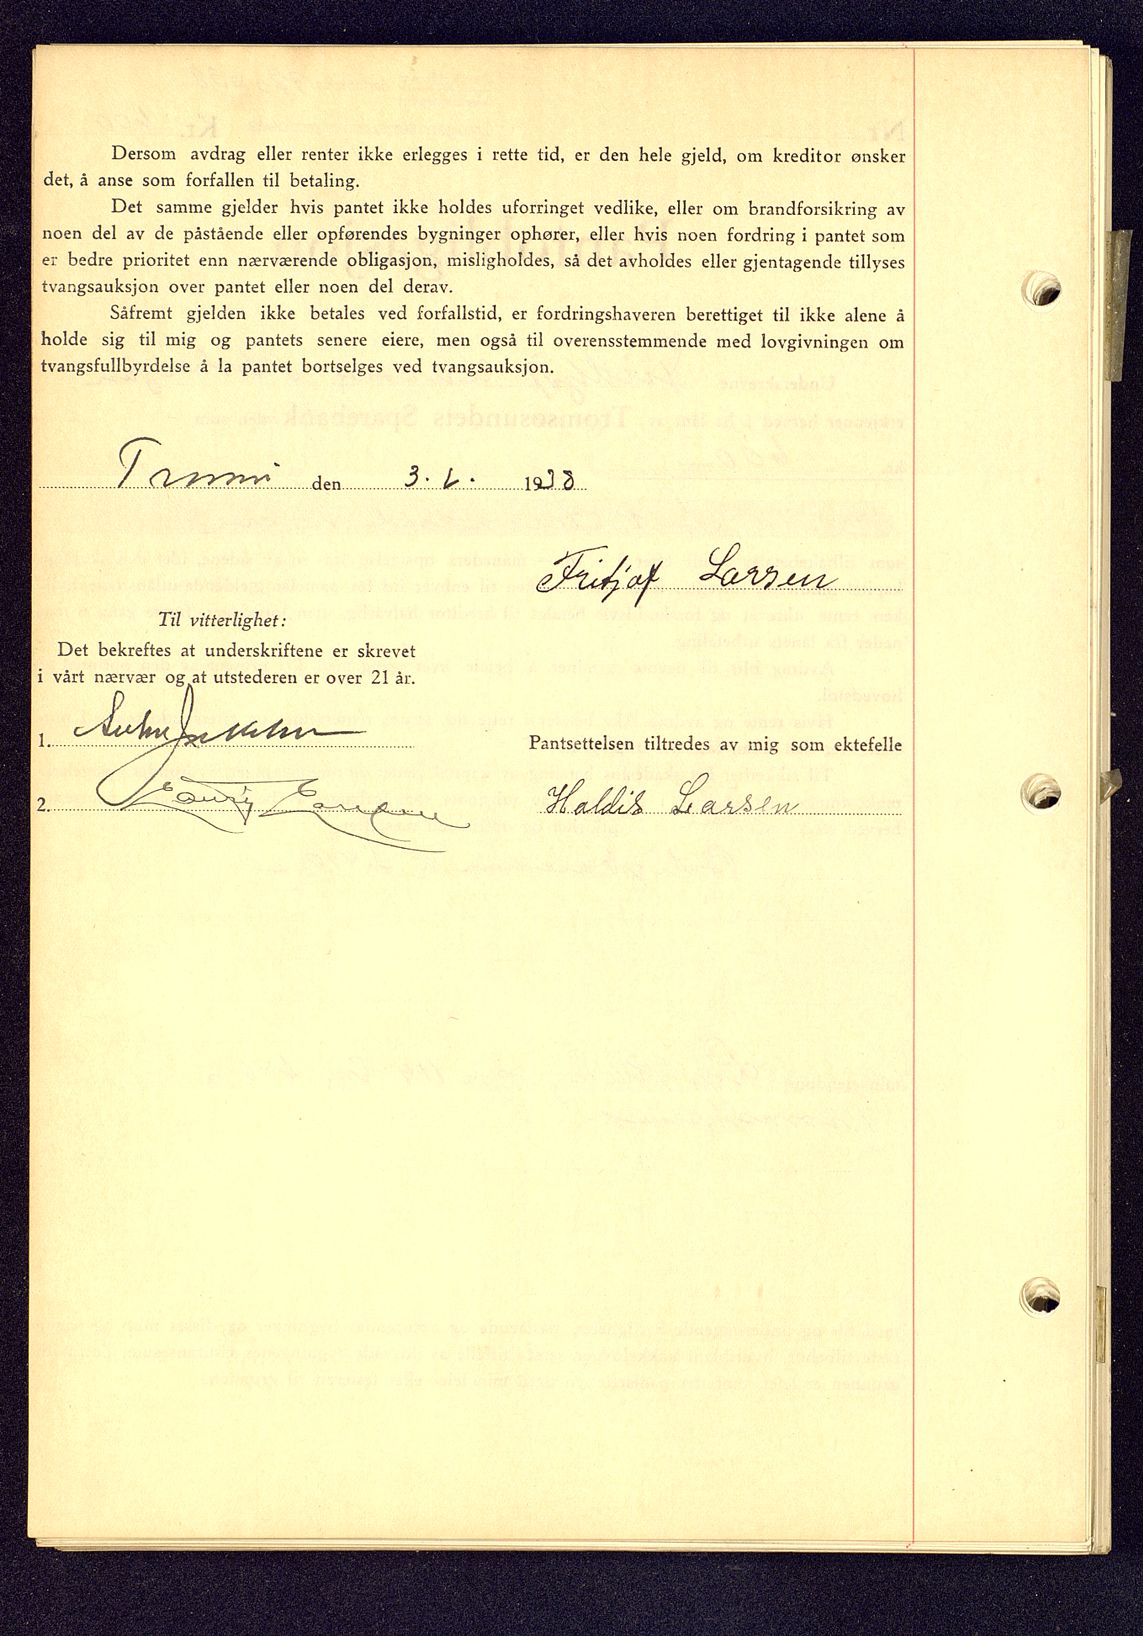 Dersom avdrag eller renter ikke erlegges i rette tid, er den hele gjeld, om kreditor ønsker
det, å anse som forfallen til betaling.
Det samme gjelder hvis pantet ikke holdes uforringet vedlike, eller om brandforsikring av
noen del av de påstående eller opførendes bygninger ophører, eller hvis noen fordring i pantet som
er bedre prioritet enn nærværende obligasjon, misligholdes, så det avholdes eller gjentagende tillyses
tvangsauksjon over pantet eller noen del derav.
Såfremt gjelden ikke betales ved forfallstid, er fordringshaveren berettiget til ikke alene å
holde sig til mig og pantets senere eiere, men også til overensstemmende med lovgivningen om
tvangsfullbyrdelse å la pantet bortselges ved tvangsauksjon.
Tromsø den 3. 1938
Fritjof Larsen
Til vitterlighet:
Det bekreftes at underskriftene er skrevet
i vårt nærvær og at utstederen er over 21 år.
1.
Pantsettelsen tiltredes av mig som ektefelle
2.
Haldis Larsen